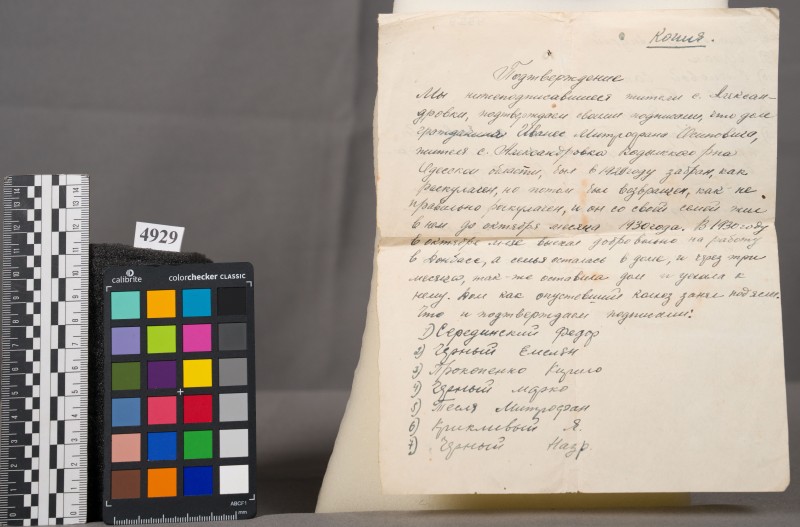 Копия.
Подтверждение
Мы нижеподписавшиеся жители с. Алексан-
дровки, подтверждаем своими подписами, что дом
гражданина Иванес Митрофана Осиповича,
жителя с. Александровка Кодымского р-на
Одесской области, был в 1928 году забран, как
раскулачен, но потом был возвращен, как не
правильно раскулачен, и он со своей семей жил
в нем до октября месяца 1930 года. В 1930 году
в октябре м-це выехал добровольно на работу
в Донбасс, а семья осталась в доме, и через три
месяца, так-же оставила дом и уехала к
нему. Дом как опустевший колхоз занял под ясли.
Что и подтверждаем подписами:
1) Серединский Федор
2) Чорный Емелян
3) Прокопенко Кирило
4) Чорный Марко
5) Тесля Митрофан
6) Крикливый Я.
7) Чорный Назр.
4929
calibrite colorchecker CLASSIC
ABCF1
mm